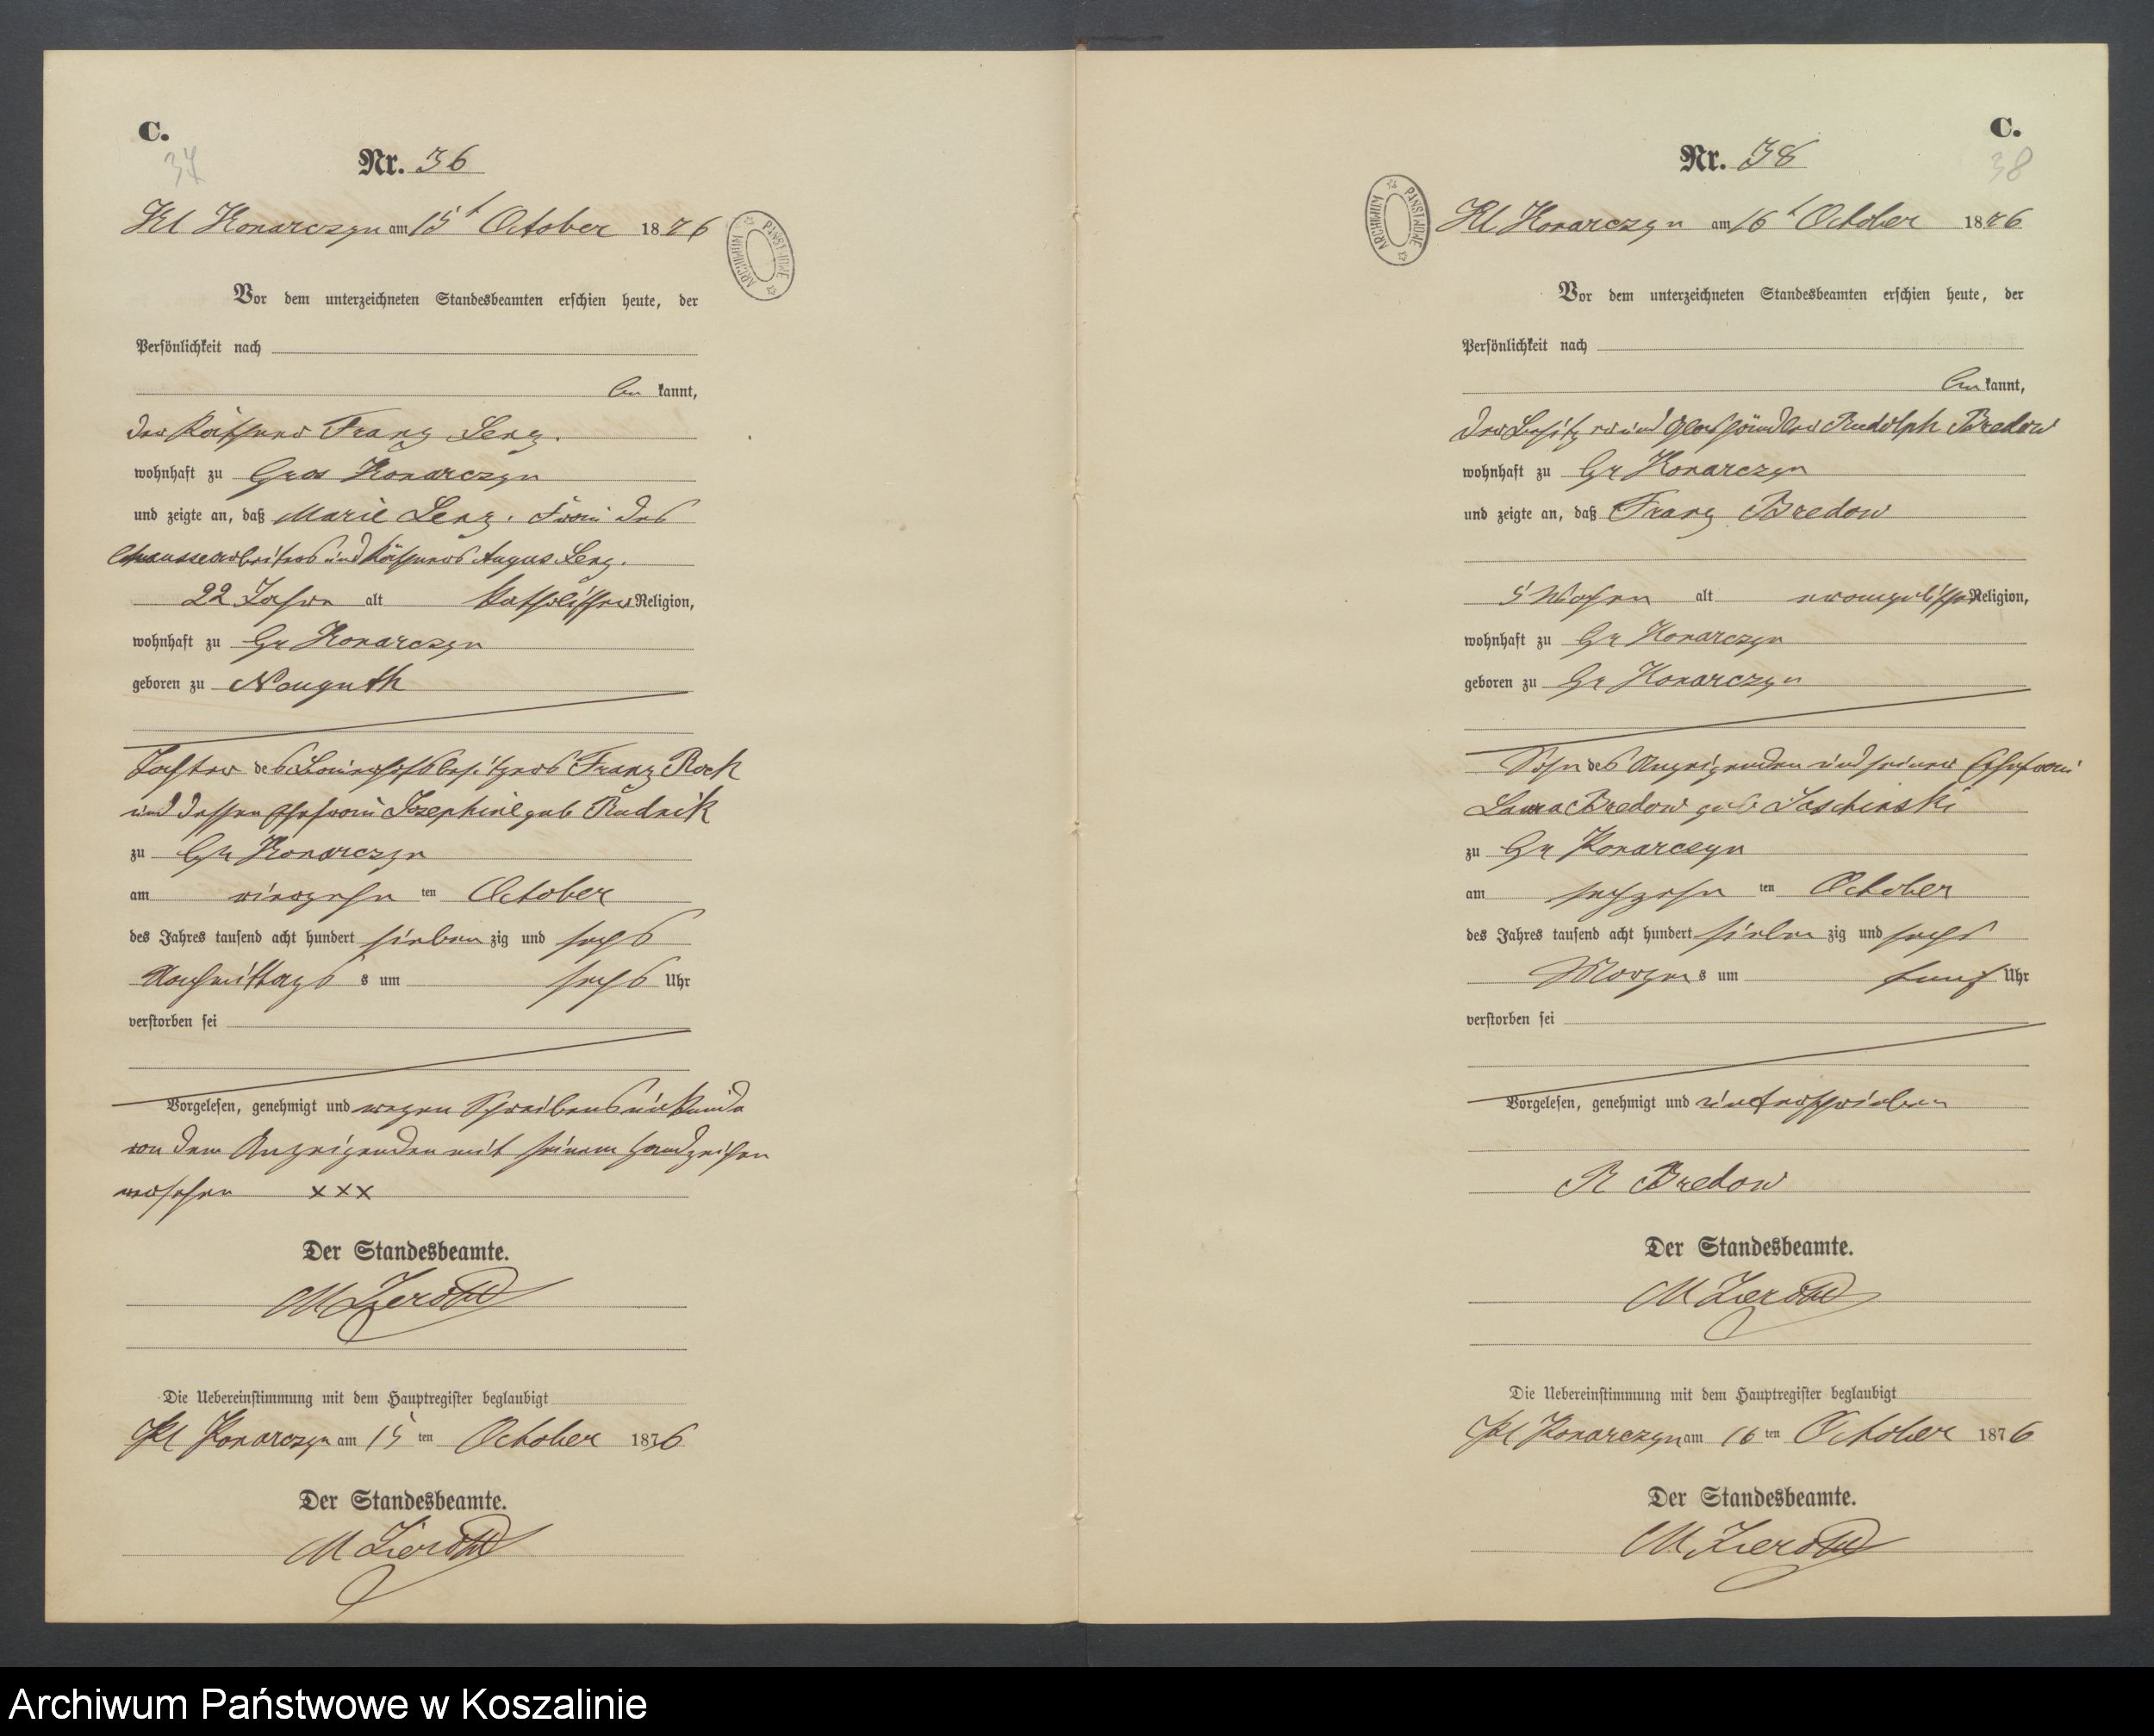 C.
37
Nr. 36
Kl Konarczyn am 15t October 1876
ARCHIWUM PAŃSTWOWE
Vor dem unterzeichneten Standesbeamten erschien heute, der
Persönlichkeit nach
be kannt,
der Käthner Franz Lenz.
wohnhaft zu Gros Konarczyn
und zeigte an, daß Marie Lenz. Frau des
Chausseearbeiters und Käthners August Lenz.
22 Jahre alt katholischer Religion,
wohnhaft zu Gr Konarczyn
geboren zu Neuguth
Tochter des Franz Rock
und dessen Ehefrau Josephine geb Rudnik
zu Gr Konarczyn
am vierzehn ten October
des Jahres tausend acht hundert sieben zig und sechs
Nachmittags s um sechs Uhr
verstorben sei
Vorgelesen, genehmigt und wegen Schreibensunkunde
von dem Anzeigenden mit seinem Handzeichen
versehen xxx
Der Standesbeamte.
Die Uebereinstimmung mit dem Hauptregister beglaubigt
Kl Konarczyn am 15 ten October 1876
Der Standesbeamte.
C.
38
Nr. 38
ARCHIWUM PAŃSTWOWE
Kl Konarczyn am 16t October 1876
Vor dem unterzeichneten Standesbeamten erschien heute, der
Persönlichkeit nach
be kannt,
der Besitzer und Rudolph Bredow
wohnhaft zu Gr Konarczyn
und zeigte an, daß Franz Bredow
5 Wochen alt evangelischer Religion,
wohnhaft zu Gr Konarczyn
geboren zu Gr Konarczyn
Sohn des Anzeigenden und seiner Ehefrau
Laura Bredow geb Joschinski
zu Gr Konarczyn
am sechzehn ten October
des Jahres tausend acht hundert sieben zig und sechs
Morgen s um fünf Uhr
verstorben sei
Vorgelesen, genehmigt und unterschrieben
R Bredow
Der Standesbeamte.
Die Uebereinstimmung mit dem Hauptregister beglaubigt
Kl Konarczyn am 16 ten October 1876
Der Standesbeamte.
Archiwum Państwowe w Koszalinie